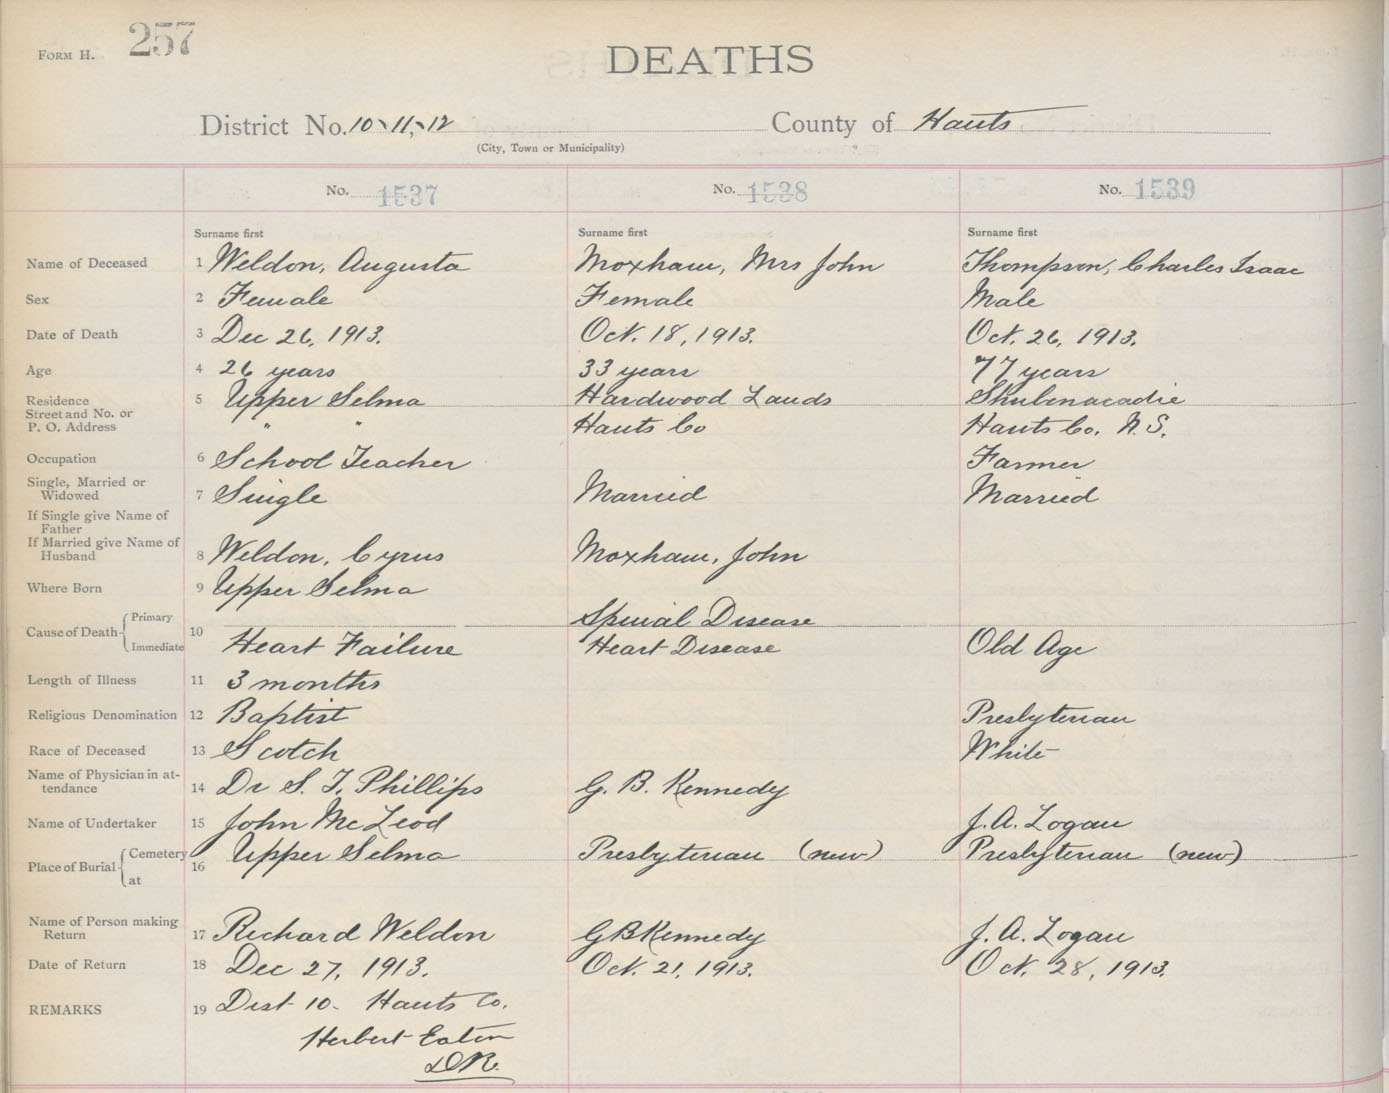 FORM H. 257
DEATHS
District No. 10, 11, 12 County of Hants
(City, Town or Municipality)
No. 1537 No. 1538 No. 1539
Surname first Surname first Surname first
Name of Deceased 1 Weldon, Augusta Moxham, Mrs John Thompson, Charles Isaac
Sex 2 Female Female Male
Date of Death 3 Dec 26, 1913. Oct. 18, 1913. Oct. 26, 1913.
Age 4 26 years 33 years 77 years
Residence 5 Upper Selma Hardwood Lands Shubenacadie
Street and No. or
P. O. Address " " Hants Co Hants Co. N.S.
Occupation 6 School Teacher Farmer
Single, Married or
Widowed 7 Single Married Married
If Single give Name of
Father
If Married give Name of
Husband 8 Weldon, Cyrus Moxham, John
Where Born 9 Upper Selma
Primary Spinal Disease
Cause of Death 10
Immediate Heart Failure Heart Disease Old Age
Length of Illness 11 3 months
Religious Denomination 12 Baptist Presbyterian
Race of Deceased 13 Scotch White
Name of Physician in at-
tendance 14 Dr S. T. Phillips G. B. Kennedy
Name of Undertaker 15 John McLeod J. A. Logan
Cemetery Upper Selma Presbyterian (new) Presbyterian (new)
Place of Burial 16
at
Name of Person making
Return 17 Richard Weldon GBKennedy J. A. Logan
Date of Return 18 Dec 27, 1913. Oct. 21, 1913. Oct. 28, 1913.
REMARKS 19 Dist 10 - Hants Co.
Herbert Eaton
D.R.